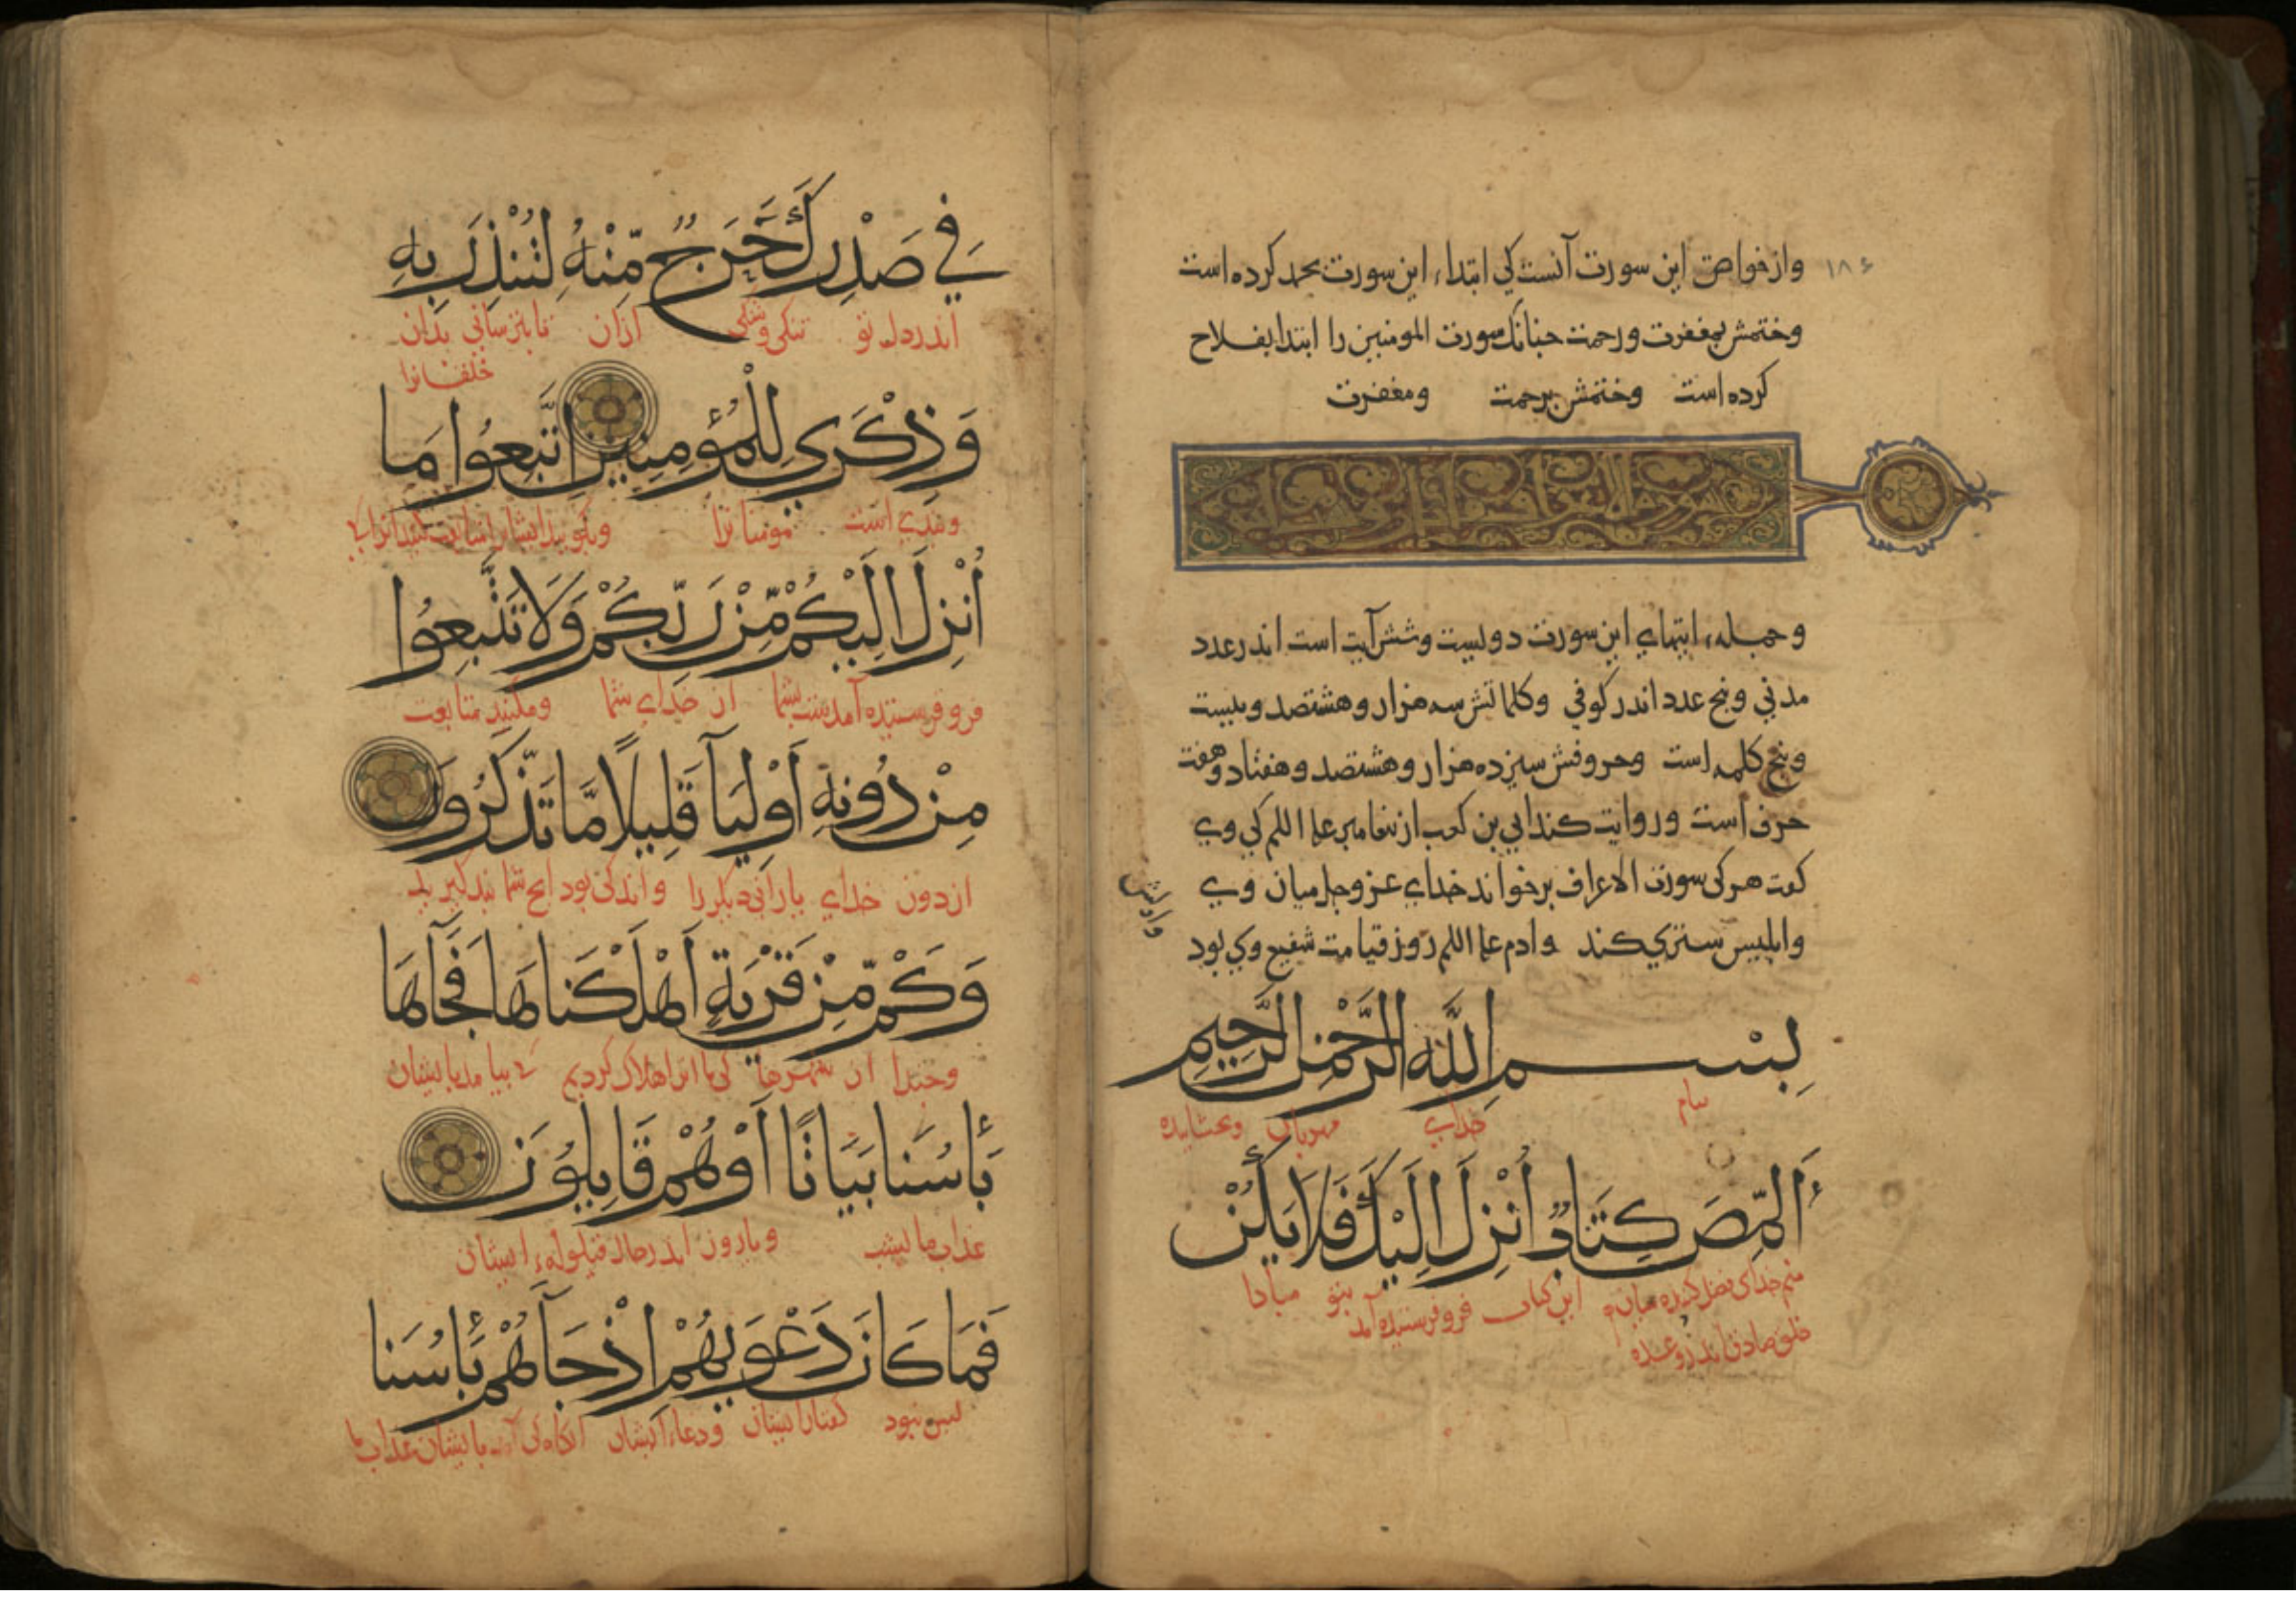 ۱۸۶
واز خواص این سورت آنست کی ابتداء این سورت بحمد کرده است
وختمش بمغفرت ورحمت جنانک سورت المومنین را ابتدا بفلاح
کرده است وختمش برحمت ومغفرت
وجمله ایتهای این سورت دویست وشش آیت است اندر عدد
مدنی وبنج عدد اندر کوفی وکلماتش سه هزار وهشتصد وبیست
وبنج کلمه است وحروفش سیزده هزار وهشتصد وهفتاد وهفت
حرف است وروایت کند ابی بن کعب از بیغامبر علم اللم کی وی
کفت هر کی سورت الاعراف برخواند خدای عز وجل میان وی
وابلیس ستری کند وادم علم اللم روز قیامت شفیع وی بود
بِسْمِ اللَّهِ الرَّحْمٰنِ الرَّحِيمِ
بنام خدای مهربان وبخشاینده
أَلٓمّٓصٓ كِتَابٌ أُنْزِلَ إِلَيْكَ فَلَا يَكُنْ
منم خدای فصل کننده میان این کتاب فرو فرستیده آمد بتو مبادا
خلق صادق اندر وعده
فِي صَدْرِكَ حَرَجٌ مِّنْهُ لِتُنْذِرَ بِهِ
اندر دل تو تنکی وشکی ازان تا بترسانی بدان
خلقانرا
وَذِكْرَي لِلْمُؤْمِنِينَ اتَّبِعُوا مَا
وبندی است مومنانرا وبکویید ایشانرا متابعت کنید انرا کی
أُنْزِلَ إِلَيْكُمْ مِّنْ رَبِّكُمْ وَلَا تَتَّبِعُوا
فرو فرستیده آمدست بشما از خدای شما ومکنید متابعت
مِنْ دُونِهِ أَوْلِيَآ قَلِيلًا مَّا تَذَّكَّرُونَ
از دون خدای یارانی دیکر را واندکی بود انج شما بند کیرید
وَكَمْ مِّنْ قَرْيَةٍ أَهْلَكْنَاهَا فَجَآهَا
وجندا از شهرها کی ما انرا هلاک کردیم کی بیامد بایشان
بَأْسُنَا بَيَاتًا أَوْ هُمْ قَايِلُونَ
عذاب ما بشب ویا روز اندر حال قیلوله ایشان
فَمَا كَانَ دَعْوَيهُمْ إِذْ جَآهُمْ بَأْسُنَا
بس نبود کفتار ایشان ودعاء ایشان انکاه کی آمد بایشان عذاب ما